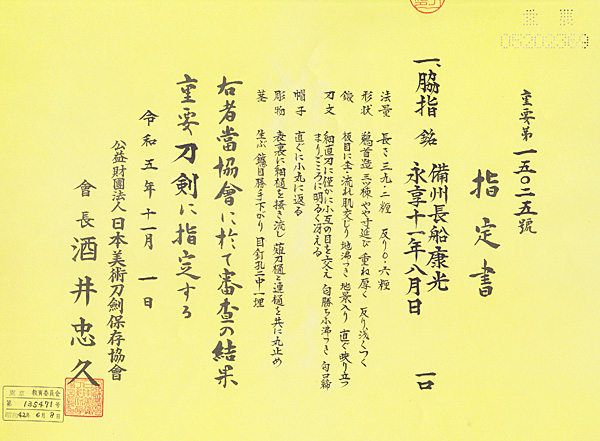 重要第一五〇二五號
指定書
一、脇指 銘 備州長船康光
永享十一年八月日 一口
法量 長さ三九・二糎 反り〇・六糎
形状 鵜首造 三ツ棟 やや寸延び 重ね厚く 反り浅くつく
鍛 板目に杢・流れ肌交じり 地沸つき 地景入り 直ぐ映り立つ
刃文 細直刃に僅かに小互の目を交え 匂勝ち小沸つき 匂口締
まりごころに明るく冴える
帽子 直ぐに小丸に返る
彫物 表裏に細樋を掻き流し 薙刀樋と連樋を共に丸止め
茎 生ぶ 鑢目勝手下がり 目釘孔二中一埋
右者當協會に於て審査の結果
重要刀剣に指定する
令和五年十一月一日
公益財團法人日本美術刀劍保存協會
會長 酒井忠久
東京 教育委員会
第 125471 号
昭和42年6月8日